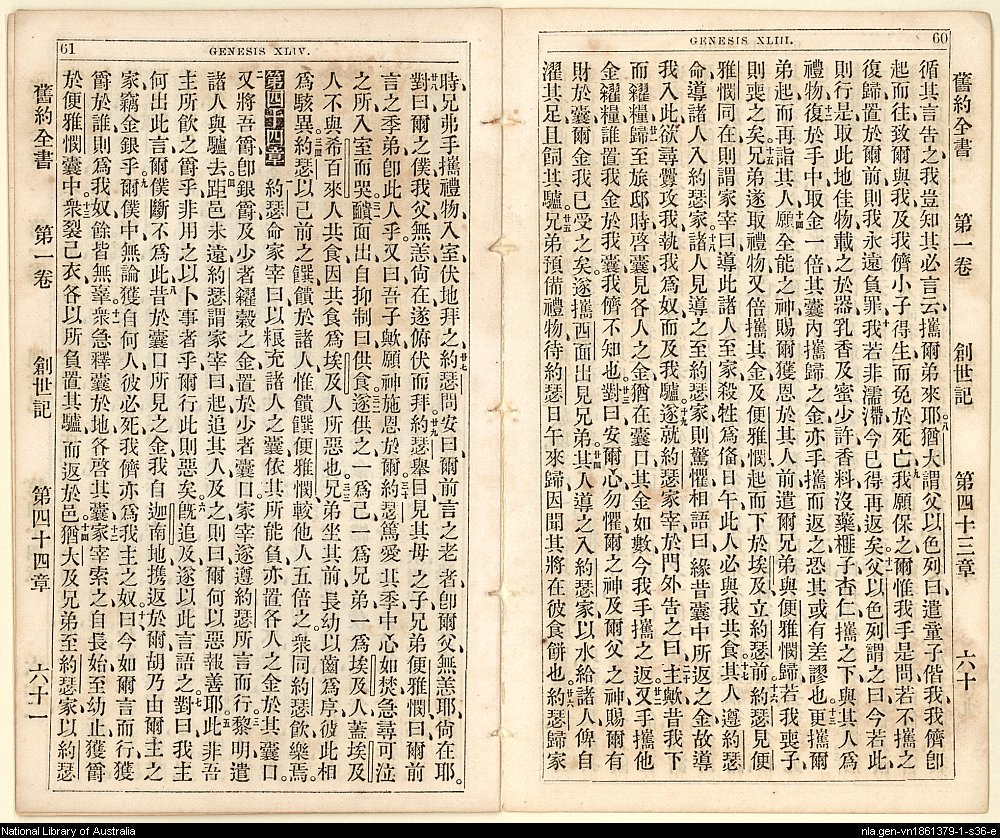 60
GENESIS XLIII.
舊約全書 第一卷 創世記 第四十三章 六十
循其言告之、我豈知其必言云、攜爾弟來耶。八猶大謂父以色列曰、遣童子偕我、我儕卽
起而往、致爾與我及我儕小子得生而免於死亡、九我願保之、爾惟我手是問、若不攜之
復歸置於爾前、則我永遠負罪、十我若非濡滯、今已得再返矣。十一父以色列謂之曰、今若此
則行是、取此地佳物載之於器、乳香及蜜少許、香料沒藥榧子杏仁、攜之下、與其人爲
禮物、十二復於手中取金一倍、其囊內攜歸之金、亦手攜而返之、恐其或有差謬也。十三更攜爾
弟起而再詣其人、十四願全能之神賜爾獲恩於其人前、遣爾兄弟與便雅憫歸、若我喪子
則喪之矣。十五兄弟遂取禮物、又倍攜其金、及便雅憫、起而下於埃及、立約瑟前、十六約瑟見便
雅憫同在、則謂家宰曰、導此諸人至家、殺牲爲俻、日午此人必與我共食、十七其人遵約瑟
命、導諸人入約瑟家、十八諸人見導之至約瑟家、則驚懼相語曰、緣昔囊中所返之金、故導
我入此、欲尋釁攻我、執我爲奴、而及我驢、十九遂就約瑟家宰、於門外告之曰、二十主歟、昔我下
而糴糧、廿一糧歸至旅邸時啓囊、見各人之金猶在囊口、其金如數、今我手攜之返、廿二又手攜他
金糴糧、誰置我金於我囊、我儕不知也。廿三對曰、安爾心勿懼、爾之神及爾父之神、賜爾有
財於囊、爾金我已受之矣。遂攜西面出見兄弟、廿四其人導之入約瑟家、以水給諸人、俾自
濯其足、且飼其驢。廿五兄弟預備禮物、待約瑟日午來歸、因聞其將在彼食餅也。廿六約瑟歸家
61
GENESIS XLIV.
時、兄弗手攜禮物入室、伏地拜之、廿七約瑟問安曰、爾前言之老者、卽爾父無恙耶、尙在耶。
廿八對曰、爾之僕我父無恙尙在、遂俯伏而拜。廿九約瑟舉目見其母之子兄弟便雅憫曰、爾前
言之季弟卽此人乎。又曰、吾子歟、願神施恩於爾、三十約瑟篤愛其季、中心如焚、急尋可泣
之所、入室而哭。三一靧面出、自抑制曰、供食。三二遂供之、一爲己、一爲兄弟、一爲埃及人、蓋埃及
人不與希百來人共食、因共食爲埃及人所惡也。三三兄弟坐其前、長幼以齒爲序、彼此相
爲駭異。三四約瑟以己前之饌饋於諸人、惟饋饌便雅憫、較他人五倍之、衆同約瑟飮樂焉。
第四十四章 一約瑟命家宰曰、以粮充諸人之囊、依其所能負、亦置各人之金於其囊口、
二又將吾爵卽銀爵、及少者糴穀之金、置於少者囊口、家宰遂遵約瑟所言而行。三黎明遣
諸人與驢去、四距邑未遠、約瑟謂家宰曰、起追其人、及之則曰、爾何以惡報善耶、五此非吾
主所飮之爵乎、非用之以卜事者乎、爾行此則惡矣。六旣追及、遂以此言語之、七對曰、我主
何出此言、爾僕斷不爲此、八昔於囊口所見之金、我自迦南地攜返於爾、胡乃由爾主之
家竊金銀乎、九爾僕中無論獲自何人、彼必死、我儕亦爲我主之奴、十曰、今如爾言而行、獲
爵於誰、則爲我奴、餘皆無辜、十一衆急釋囊於地、各啓其囊、十二家宰索之、自長始至幼止、獲爵
於便雅憫囊中。十三衆裂己衣、各以所負置其驢、而返於邑、十四猶大及兄弟至約瑟家、以約瑟
舊約全書 第一卷 創世記 第四十四章 六十一
National Library of Australia
nla.gen-vn1861379-1-s36-e